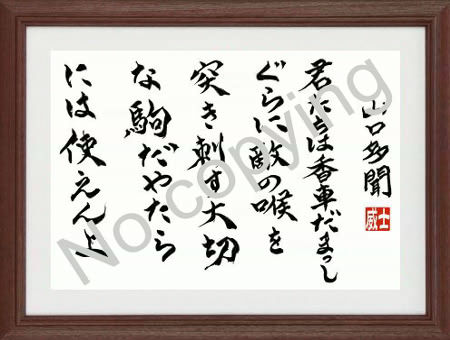 山口多聞
士威
君たちは香車だまっし
ぐらに敵の喉を
突き刺す大切
な駒だやたら
には使えんよ
No copying